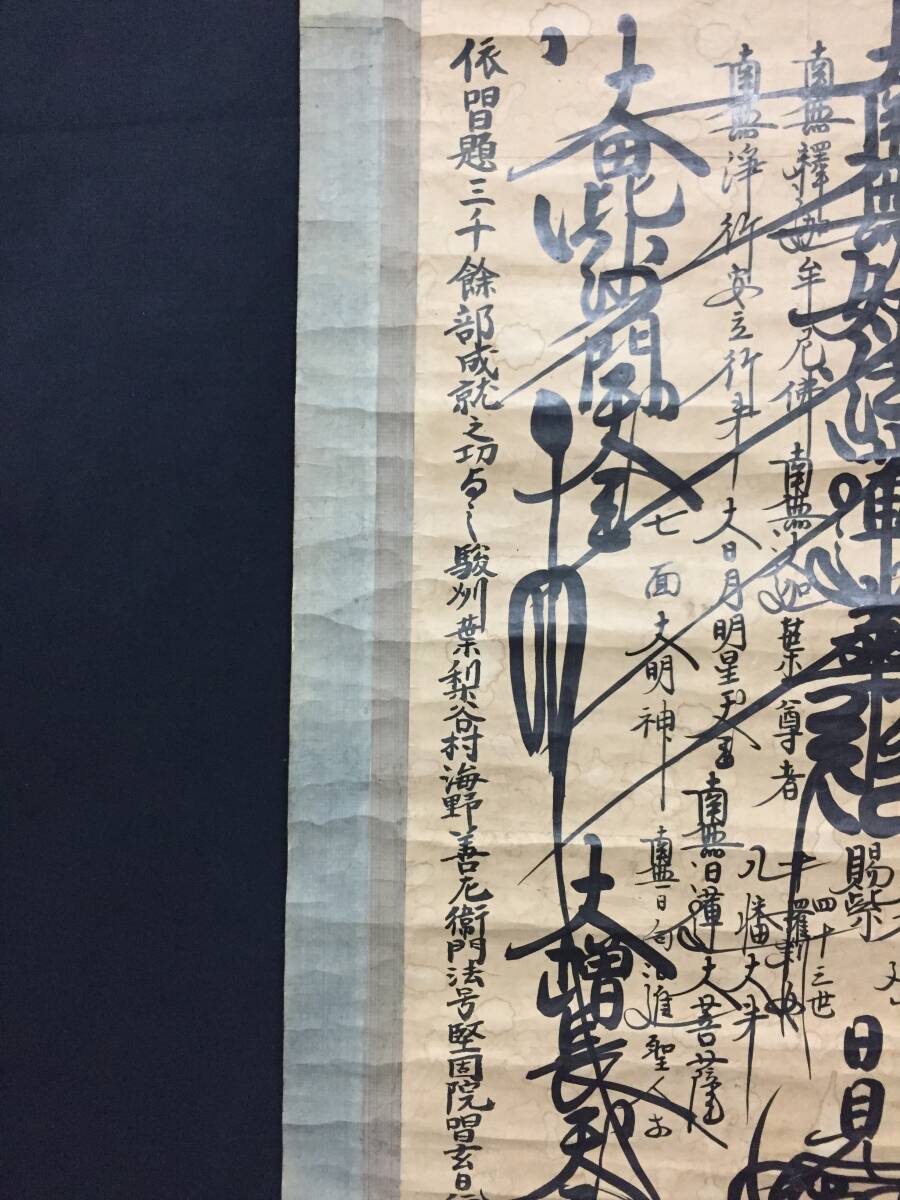 南無妙法蓮華経
賜紫
四十三世
日見
南無釋迦牟尼佛
南無大迦葉尊者
十羅刹女
南無浄行安立行等
大日月明星天王
八幡大
南無日蓮大菩薩
七面大明神
南無日向日進聖人等
大毘沙門天王
大増長天
依唱題三千餘部成就之功与之駿州葉梨谷村海野善左衛門法号堅固院唱玄日